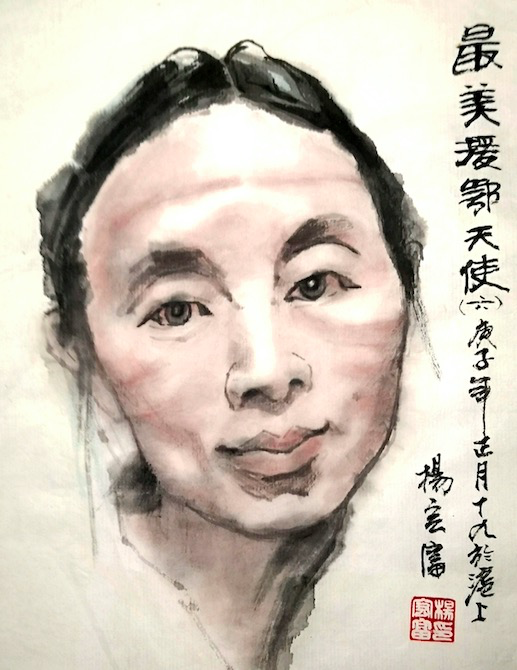 最美援鄂天使(六)庚子年正月十九於滬上
楊宏富